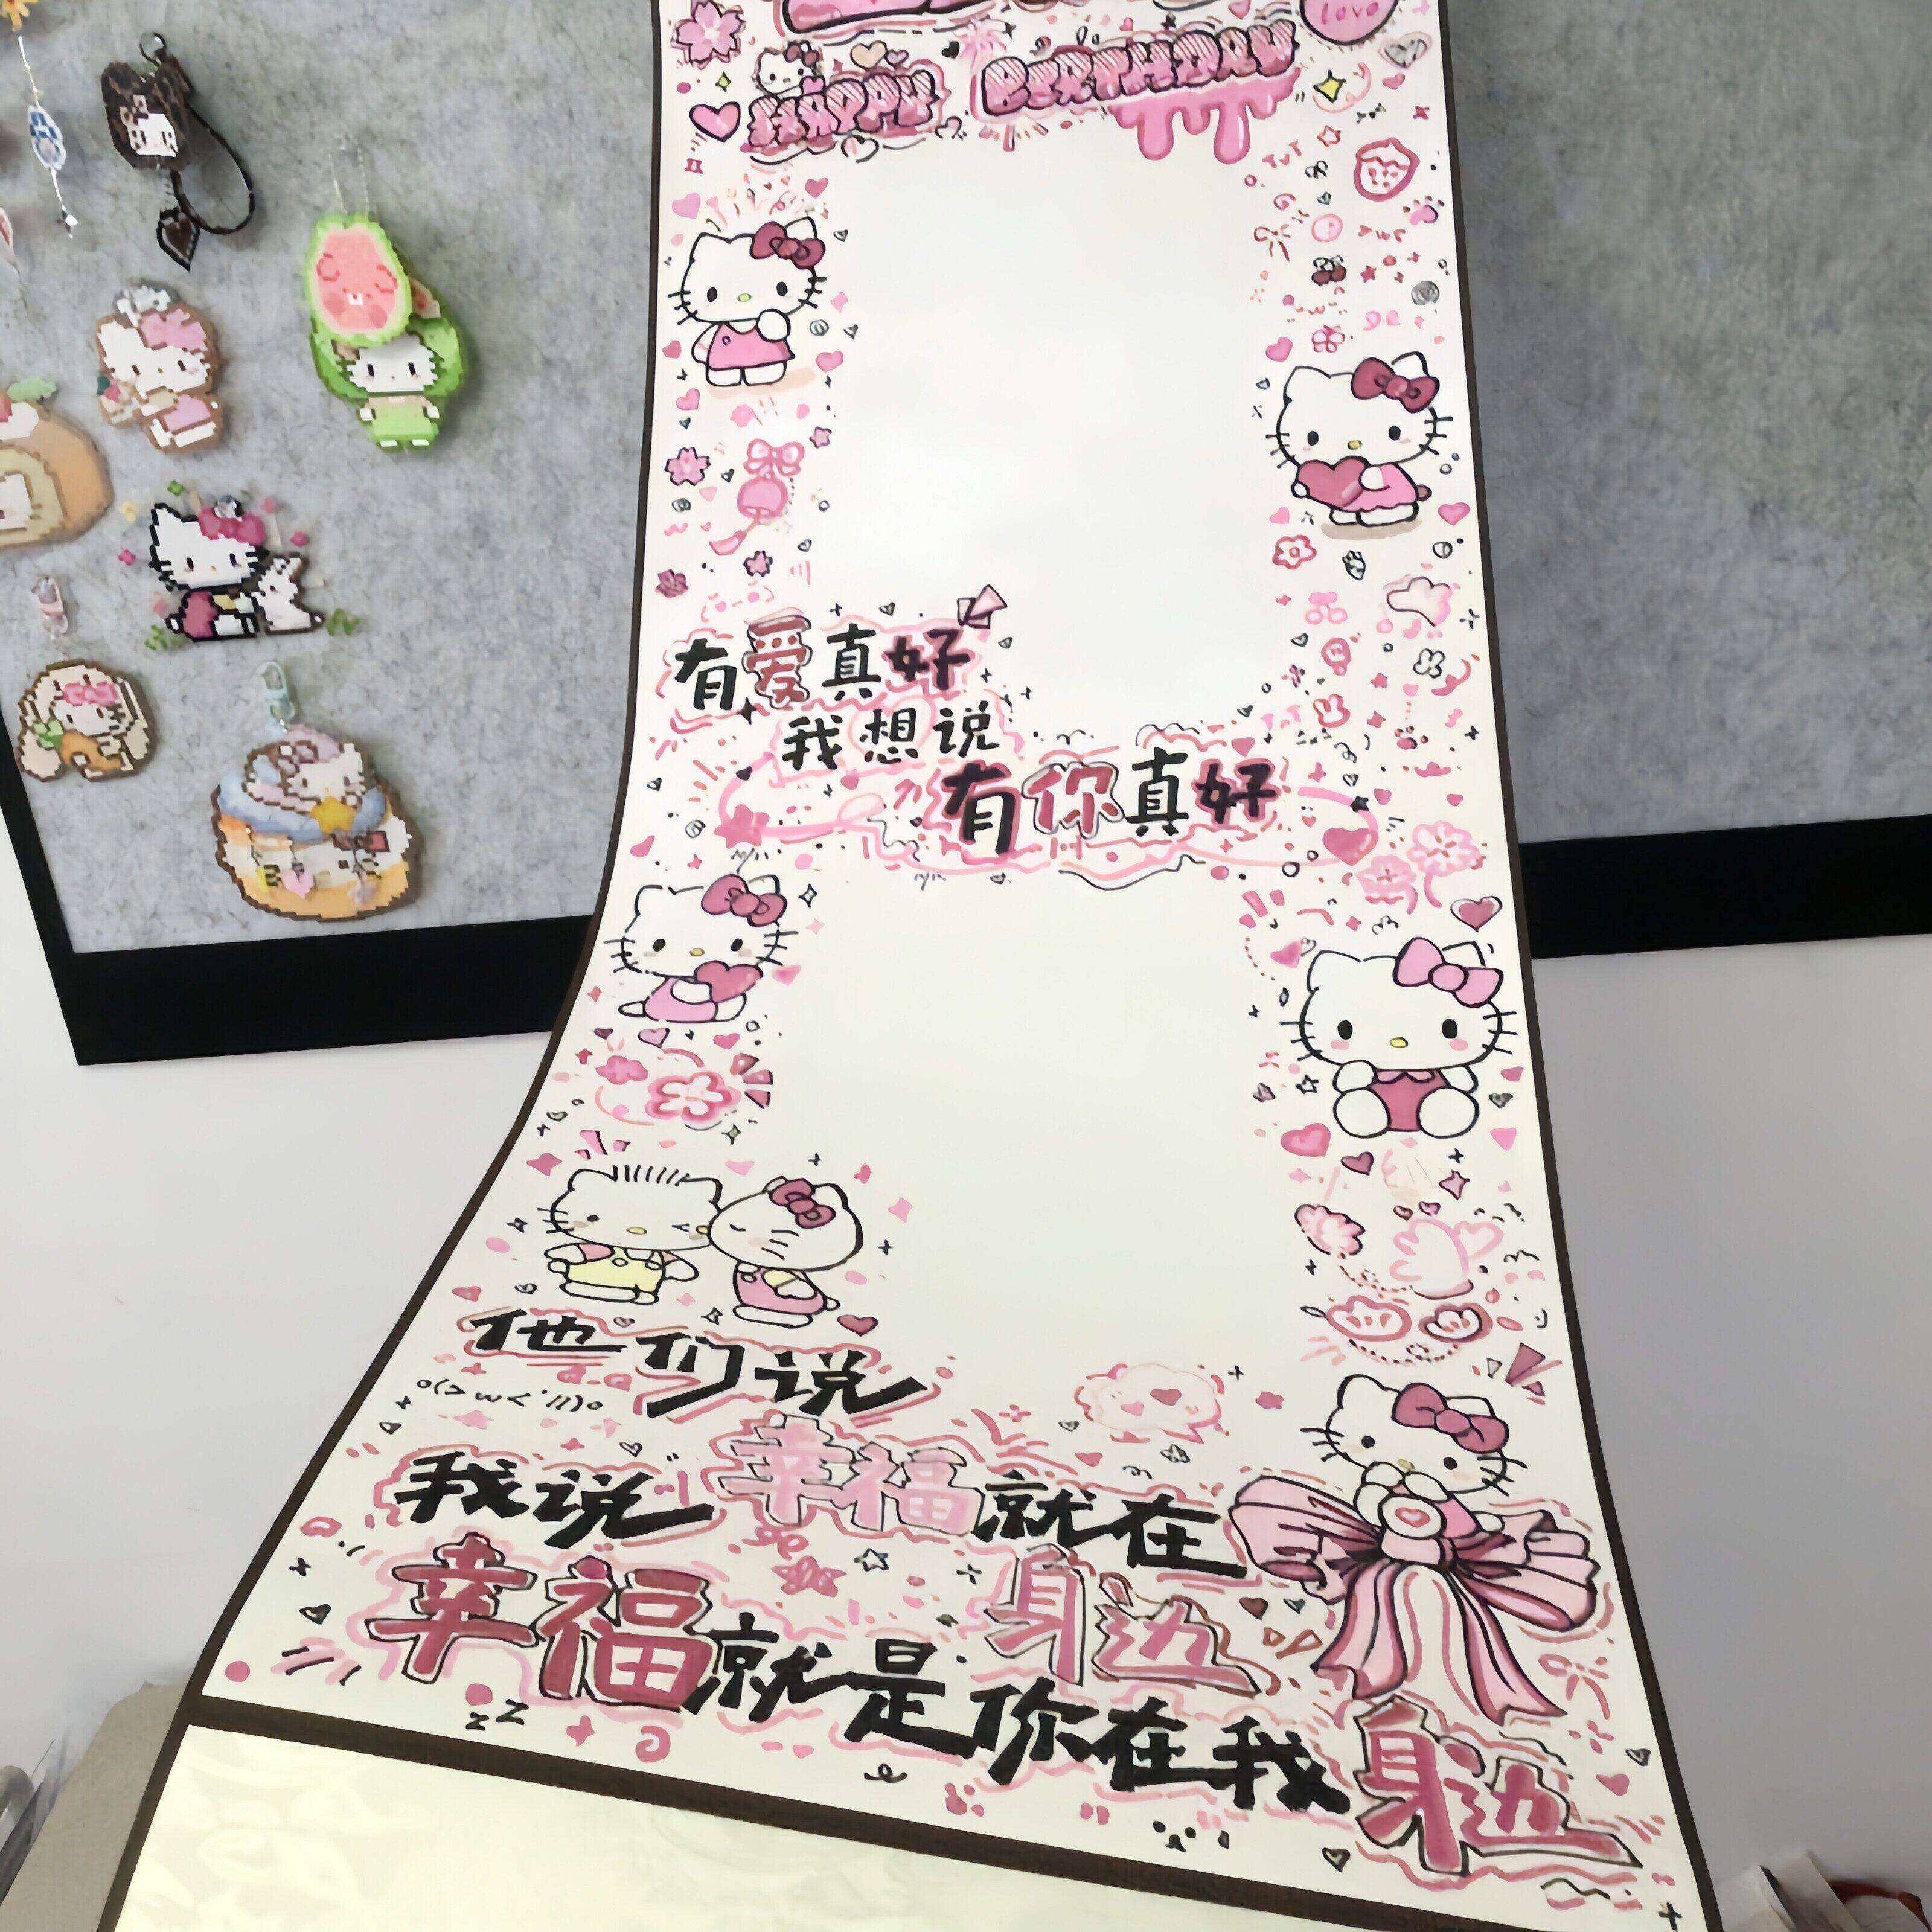 love
HAPPY BIRTHDAY
有爱真好
我想说
有你真好
他们说
我说幸福就在
身边
幸福就是你在我
身边
zZ